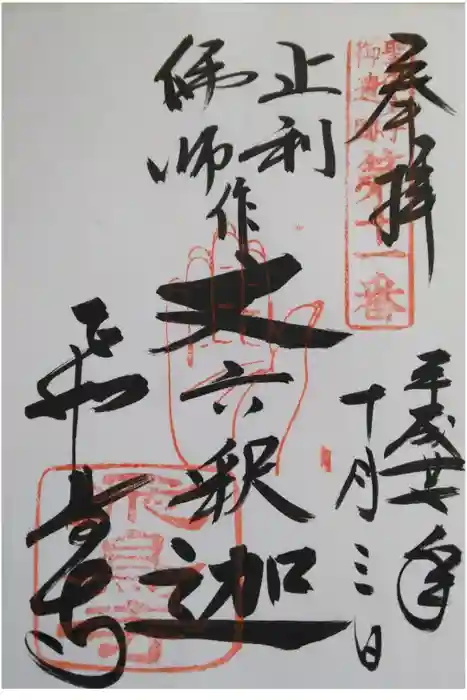 奉拝
聖徳太子
御遺跡第十一番
平成廿年
十月三日
止利
佛師作
丈六釈迦
飛鳥寺